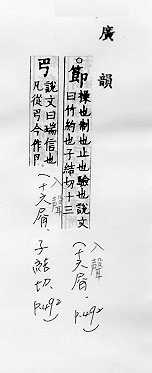 廣韻
。節操也制也止也驗也說文
曰竹約也子結切十三
入聲
(十六屑. p.492)
卪說文曰瑞信也
凡從卪今作卩
入聲
(十六屑. 子結切. p.492)